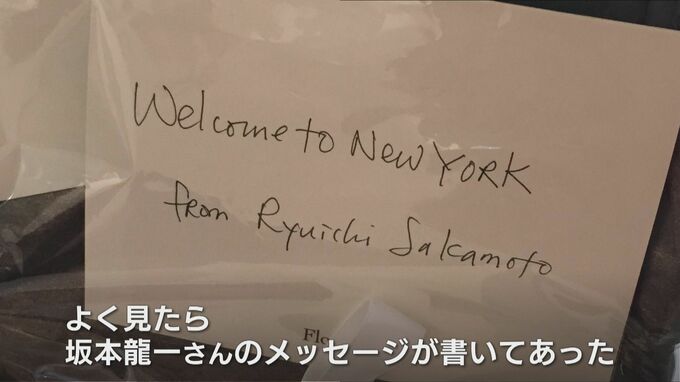 Welcome to NEW YORK
from Ryuichi Sakamoto
よく見たら
坂本龍一さんのメッセージが書いてあった